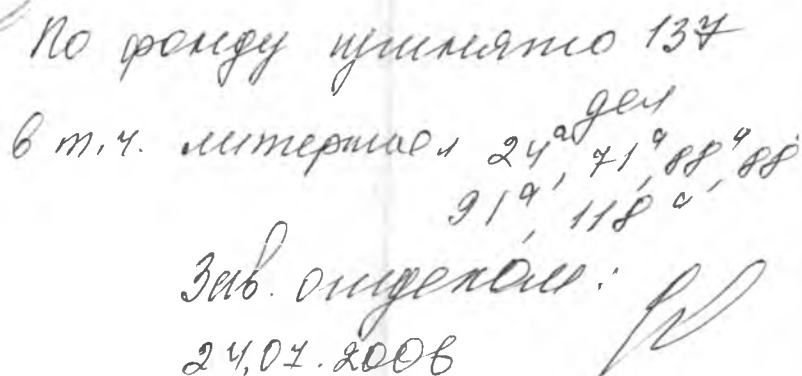 По фонду принято 137
дел
в т.ч. литерные 24а, 71а, 88а, 88
91а, 118а
Зав. отделом:
24.07.2006